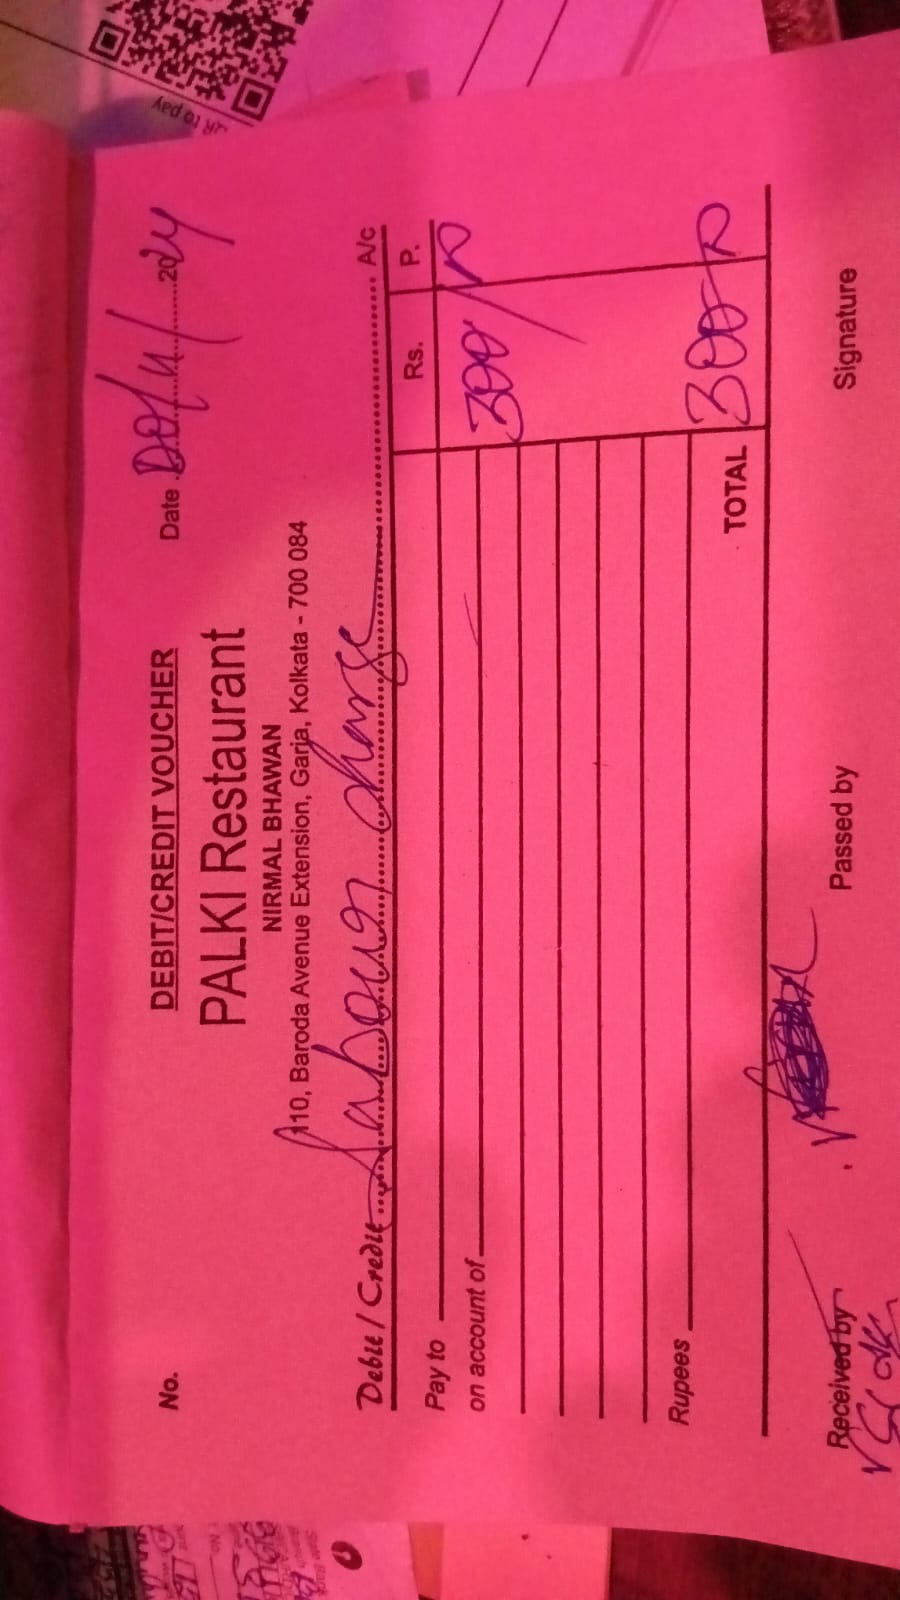 QR to pay
No.
DEBIT/CREDIT VOUCHER
Date 20/11/2024
PALKI Restaurant
NIRMAL BHAWAN
110, Baroda Avenue Extension, Garia, Kolkata - 700 084
Debit / Credit Labour charge A/c
Pay to Rs. P.
on account of 300/
Rupees
TOTAL 300
Received by Passed by Signature